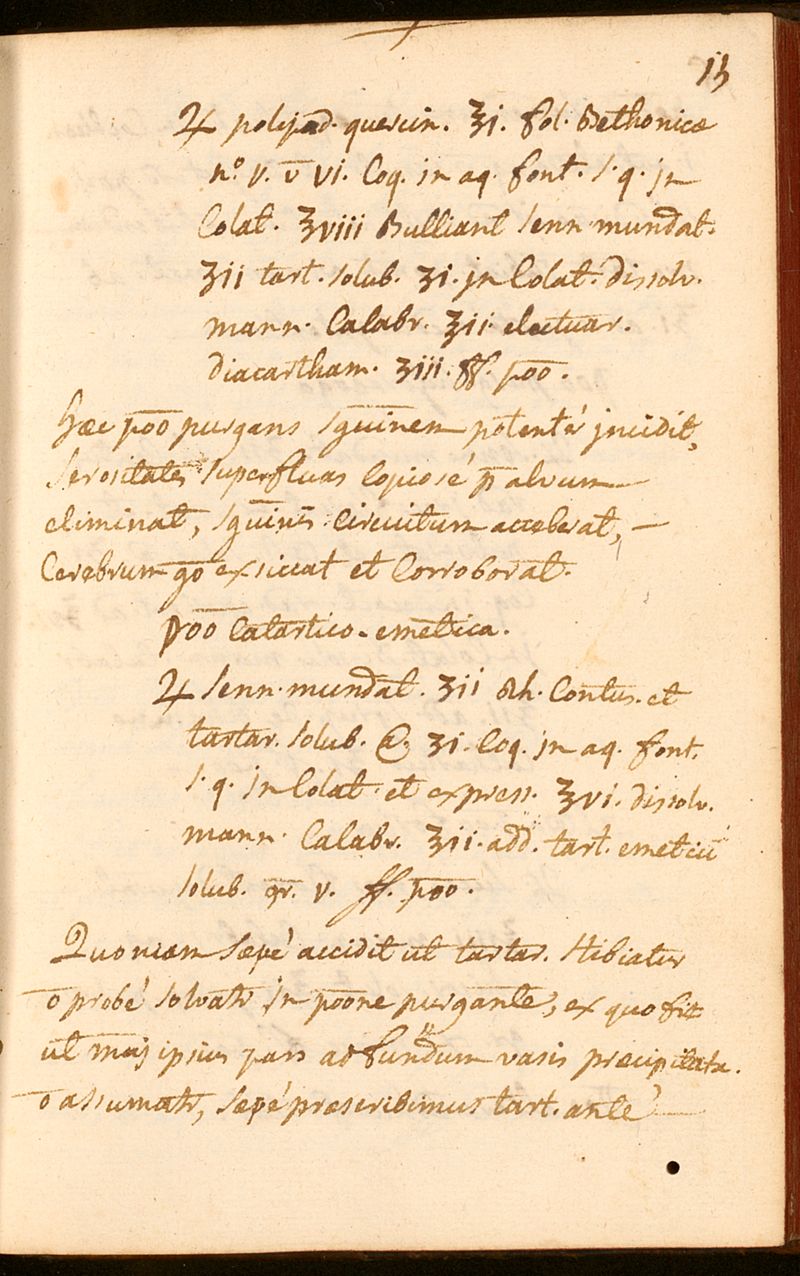 13
♃ polypod. quercin. ℥i. fol. Bethonicæ
nº v. v̄ vi. Coq. in aq. font. s. q. in
Colat. ℥viii Bulliant senn. mundat.
ʒii tart. solub. ʒi. in Colat. dissolv.
mann. Calabr. ℥ii. electuar.
diacartham. ʒiii. ff. pōō.
Hæc pōō purgans sguinem potentèr incidit,
serositates superfluas copiosé p̄ alvum
eliminat, sguinis circuitum accelerat,
Cerebrum gō exsiccat et Corroborat.
pōō Catartico-emetica.
♃ senn. mundat. ʒii Rh. Contus. et
tartar. solub. @ ʒi. Coq. in aq. font.
s. q. in Colat. et express. ℥vi. dissolv.
mann. Calabr. ℥ii. add. tart. emeticū
solub. gr. v. ff. pōō.
Quoniam sæpé accidit ut tartar. stibiatus
ō probé solvatr in pōōne purgante, ex quo fit
ut maj ipsius pars ad fundum vasis præcipitata
ō assumatr, sæpé præscribimus tart. anté